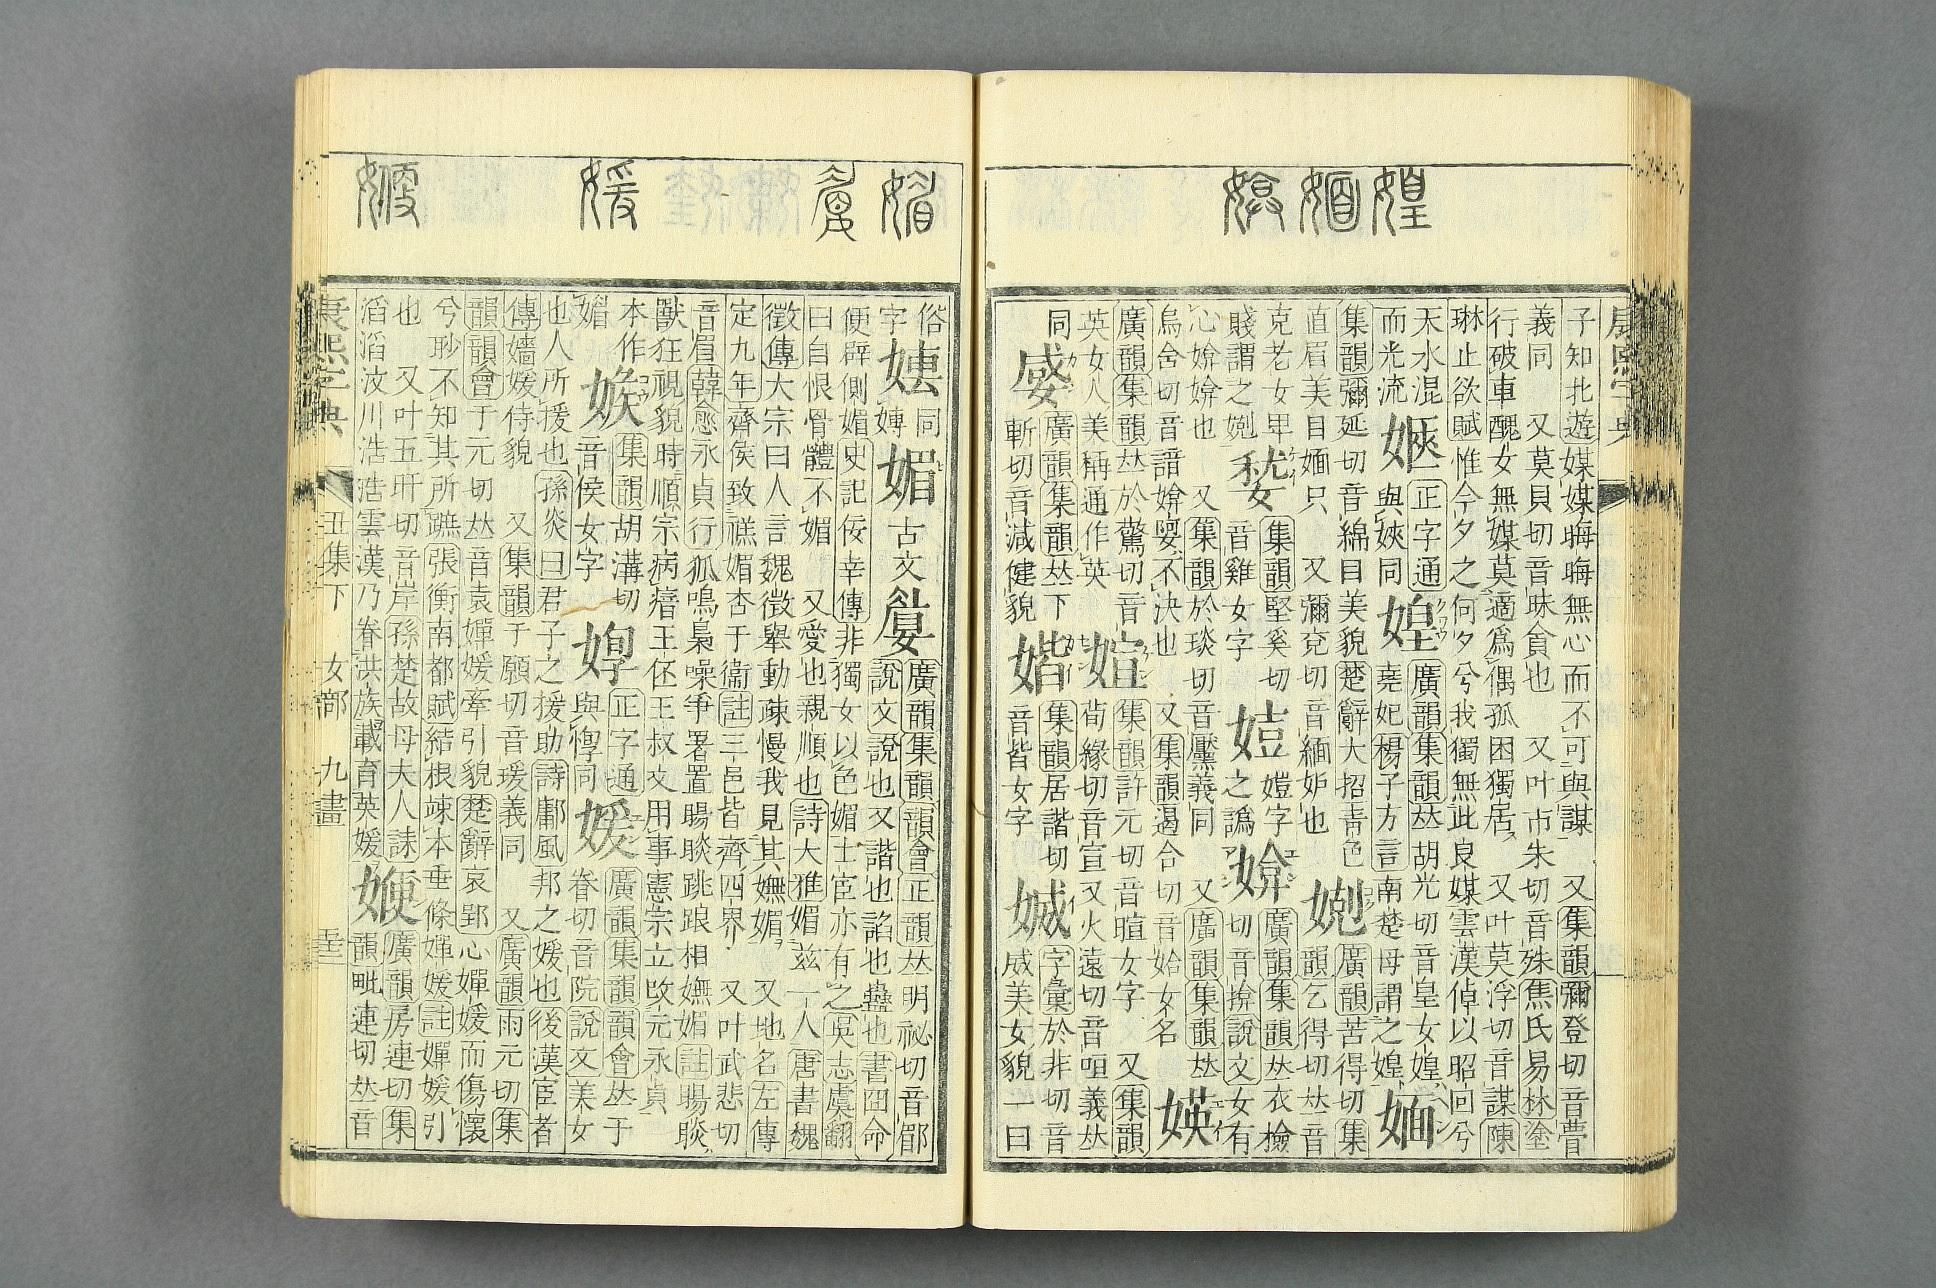 媓 媔 媕
子知北遊媒媒晦晦無心而不可與謀 又集韻彌登切音瞢
義同 又莫貝切音昧貪也 又叶市朱切音殊焦氏易林塗
行破車醜女無媒莫適爲偶孤困獨居 又叶莫浮切音謀陳
琳止欲賦惟今夕之何夕兮我獨無此良媒雲漢倬以昭回兮
天水混
而光流
正字通
與㛍同
媓
廣韻集韻𠀤胡光切音皇女媓
堯妃楊子方言南楚母謂之媓
媔
集韻彌延切音綿目美貌楚辭大招靑色
直眉美目媔只 又彌兗切音緬妒也
廣韻苦得切集
韻乞得切𠀤音
克老女甲
賤謂之
集韻堅奚切
音雞女字
嬉字
之譌
媕
廣韻集韻𠀤衣檢
切音揜說文女有
心媕媕也 又集韻於琰切音黶義同 又廣韻集韻𠀤
烏含切音諳媕娿不決也 又集韻遏合切音姶女名
媖
廣韻集韻𠀤於驚切音
英女人美稱通作英
媗
集韻許元切音暄女字 又集韻
荀緣切音宣又火遠切音咺義𠀤
同
廣韻集韻𠀤下
斬切音減健貌
媘
集韻居諧切
音皆女字
媙
字彙於非切音
威美女貌一曰
媚 媛
俗
字
同
媚
古文
廣韻集韻韻會正韻𠀤明祕切音郿
說文說也又諧也諂也蠱也書冏命
便辟側媚史記佞幸傳非獨女以色媚士宦亦有之吳志虞翻
曰自恨骨體不媚 又愛也親順也詩大雅媚兹一人唐書魏
徵傳大宗曰人言魏徵舉動疎慢我見其嫵媚 又地名左傳
定九年齊侯致禚媚杏于衞註三邑皆齊四界 又叶武悲切
音眉韓愈永貞行狐鳴梟噪爭署置睗睒跳踉相嫵媚註睗睒
獸狂視貌時順宗病瘖王伾王叔文用事憲宗立改元永貞
本作
媢
集韻胡溝切
音侯女字
正字通
與惸同
媛
廣韻集韻韻會𠀤于
眷切音院說文美女
也人所援也孫炎曰君子之援助詩鄘風邦之媛也後漢宦者
傳嬙媛侍貌 又集韻于願切音瑗義同 又廣韻雨元切集
韻韻會于元切𠀤音袁嬋媛牽引貌楚辭哀郢心嬋媛而傷懷
兮眇不知其所蹠張衡南都賦結根竦本垂條嬋媛註嬋媛引
也 又叶五旰切音岸孫楚故母大人誄
滔滔汶川浩浩雲漢乃眷洪族載育英媛
㛹
廣韻房連切集
韻毗連切𠀤音
康熙字典 丑集下 女部 九畫